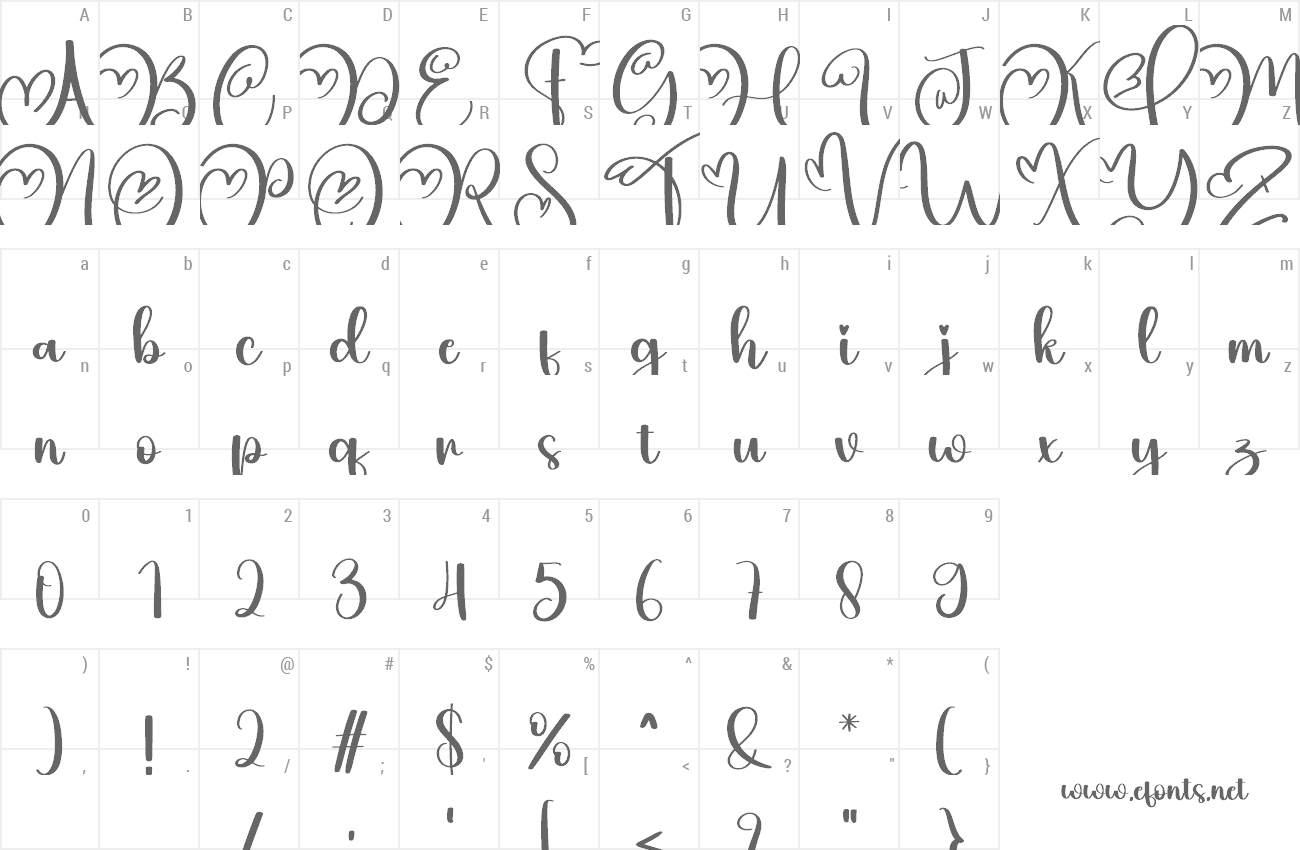 A B C D E F G H I J K L M
A B C D E F G H I J K L M
N O P Q R S T U V W X Y Z
N O P Q R S T U V W X Y Z
a b c d e f g h i j k l m
a b c d e f g h i j k l m
n o p q r s t u v w x y z
n o p q r s t u v w x y z
0 1 2 3 4 5 6 7 8 9
0 1 2 3 4 5 6 7 8 9
) ! @ # $ % ^ & * (
) ! 2 # $ % ^ & * (
, . / ; ' [ < ? " }
/ ' [ < ? " }
www.cfonts.net